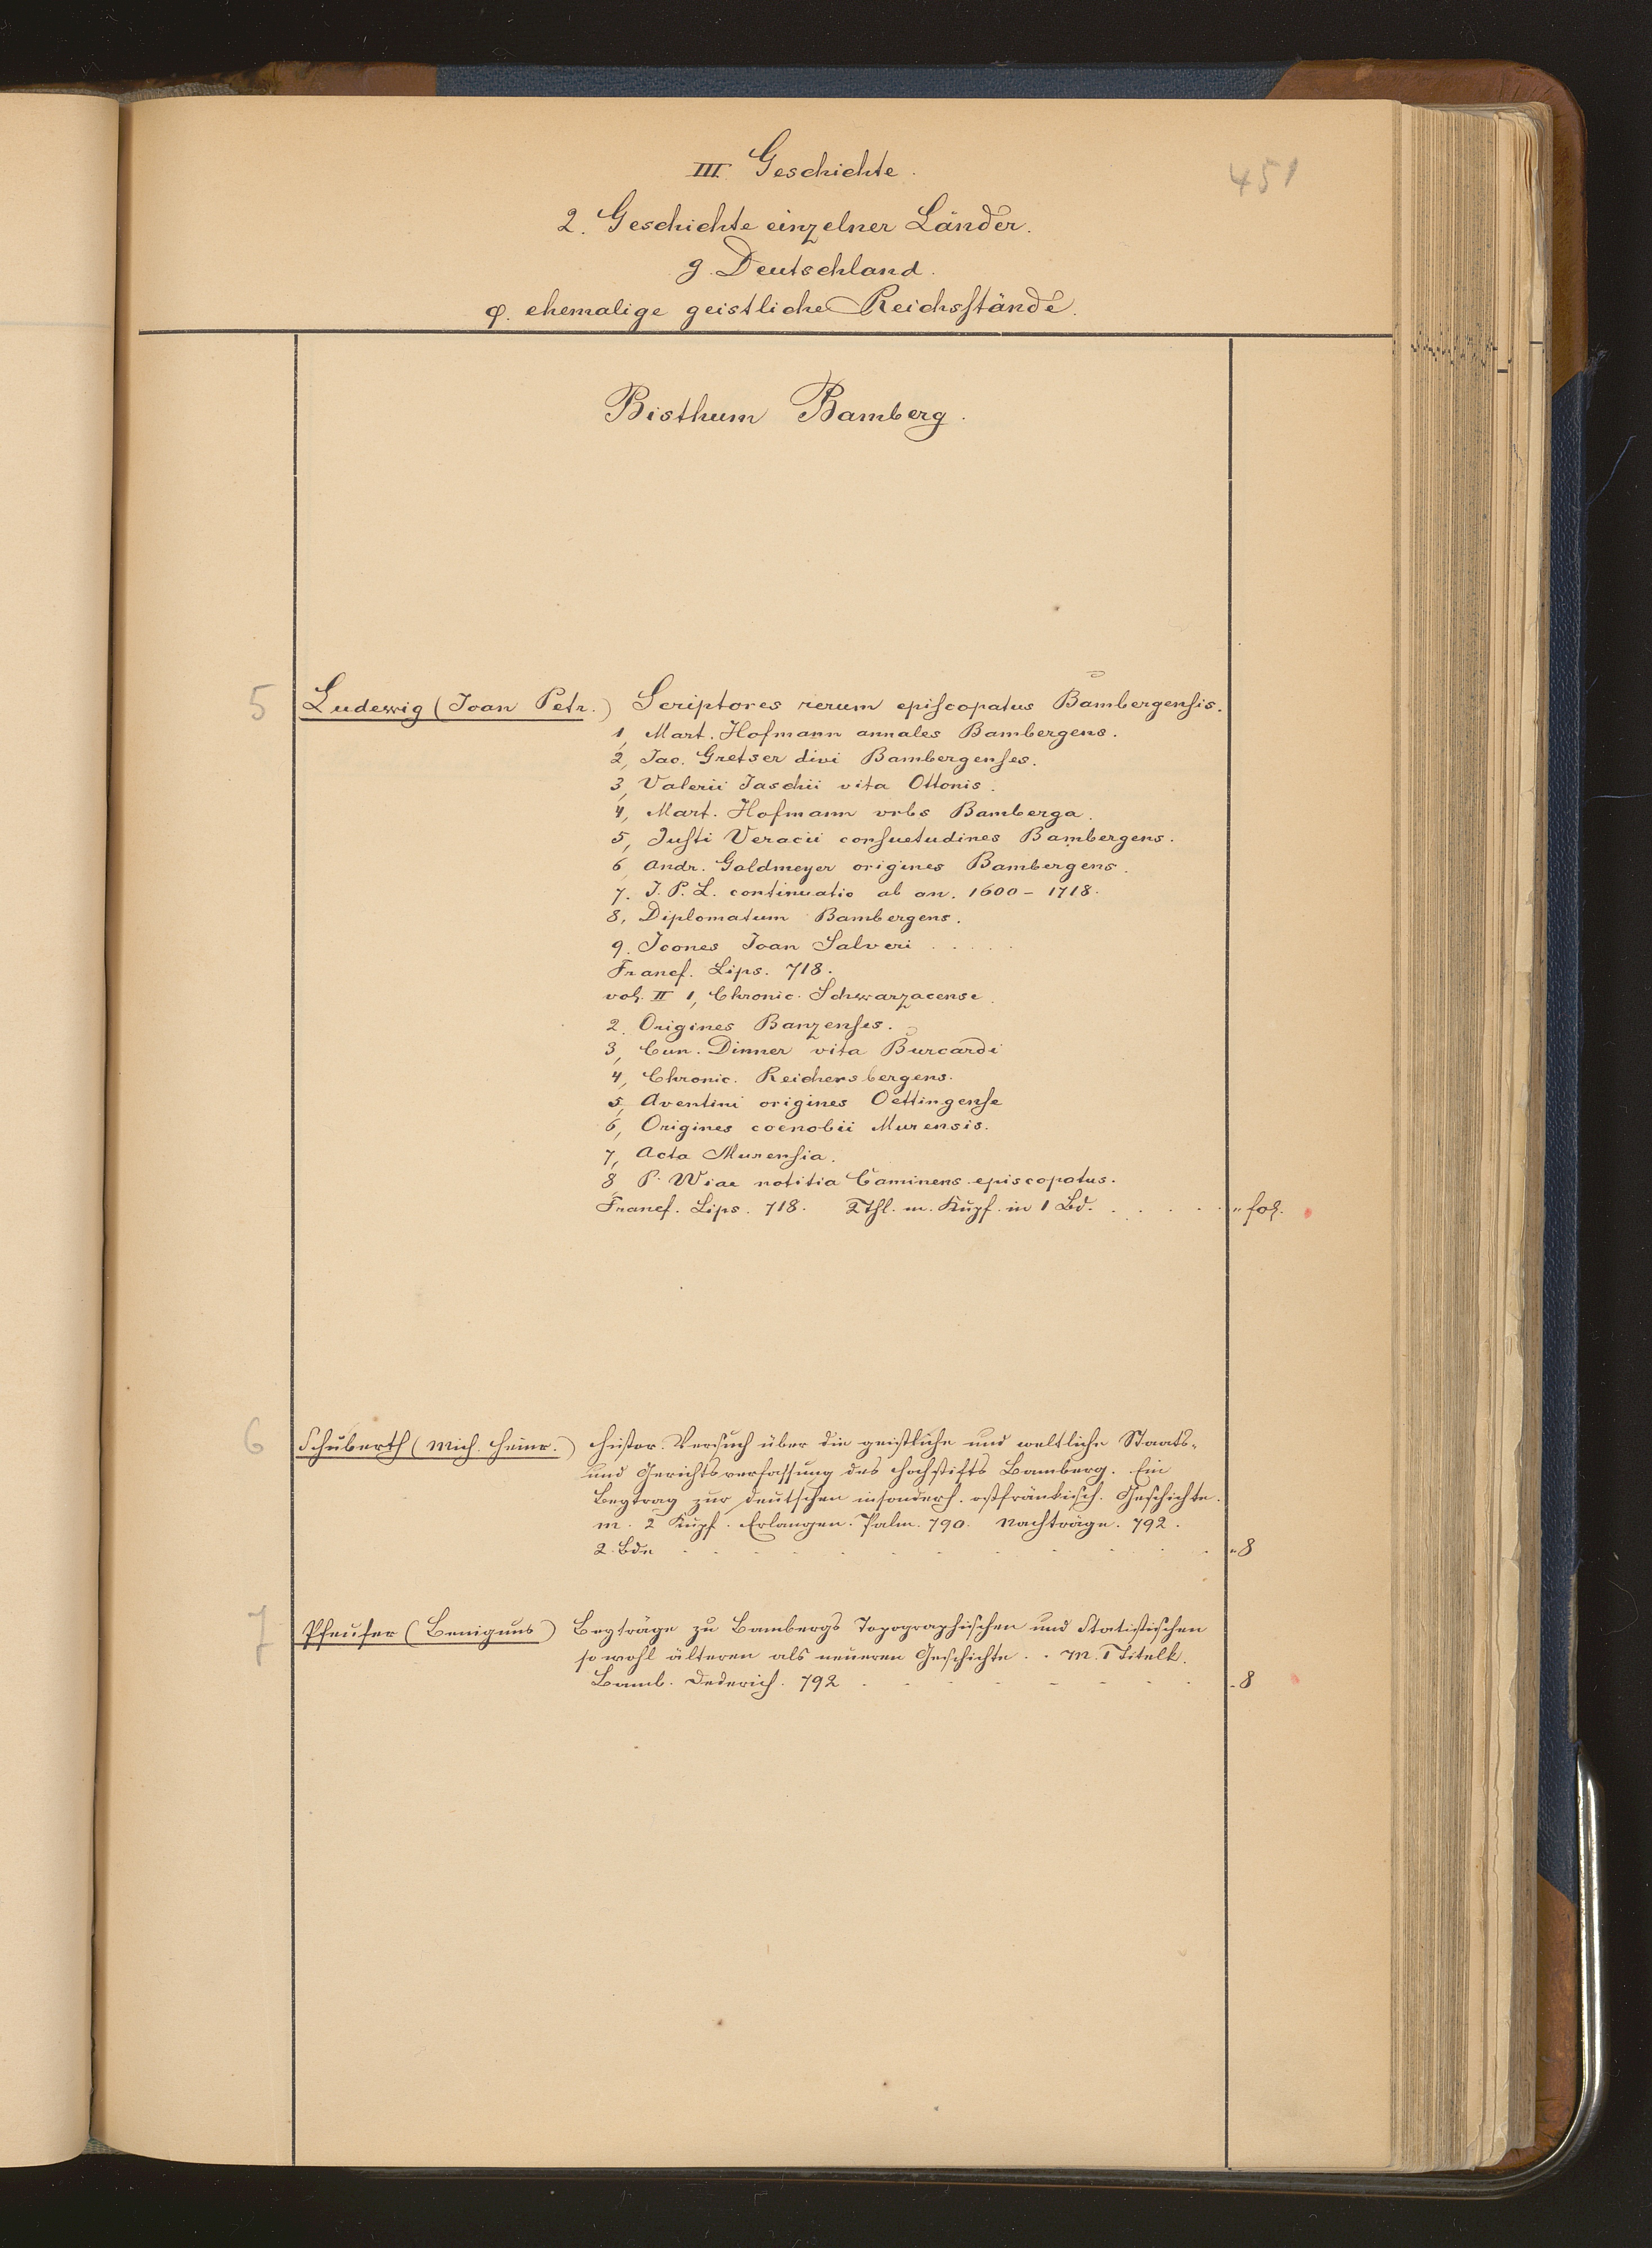 III. Geschichte.
451
2. Geschichte einzelner Länder.
g. Deutschland.
φ. ehemalige geistliche Reichsstände.
Bisthum Bamberg.
5 Ludewig (Joan Petr.) Scriptores rerum episcopatus Bambergensis.
1, Mart. Hofmann annales Bambergens.
2, Jac. Gretser divi Bambergenses.
3, Valerii Jaschii vita Ottonis.
4, Mart. Hofmann vrbs Bamberga.
5, Justi Veracii consuetudines Bambergens.
6, Andr. Goldmeyer origines Bambergens.
7. J. P. L. continuatio ab an. 1600 - 1718.
8, Diplomatum Bambergens.
9. Icones Joan Salveri . . . . .
Francf. Lips. 718.
vol. II 1, Chronic. Schwarzacense.
2. Origines Banzenses.
3, Cun. Dinner vita Burcardi
4, Chronic. Reichersbergens.
5, Aventini origines Oettingense
6, Origines coenobii Murensis.
7, Acta Murensia.
8 P. Wiae notitia Caminens episcopatus.
Francf. Lips. 718. 2 Thl. m. Kupf. in 1 Bd. . . . . . " fol.
6 Schuberth (Mich. Heinr.) Histor. Versuch über die geistliche und weltliche Staats-
und Gerichtsverfassung des Hochstifts Bamberg. Ein
Beytrag zur deutschen insonderh. ostfränkisch. Geschichte.
m. 2 Kupf. Erlangen. Palm. 790. Nachträge. 792.
2. Bde . . . . . . . . . . "8
7 Pfeufer (Benignus) Beyträge zu Bambergs Topographischen und Statistischen
so wohl älteren als neueren Geschichte . . M. 1 Titelk.
Bamb. Dederich. 792 . . . . . . . "8